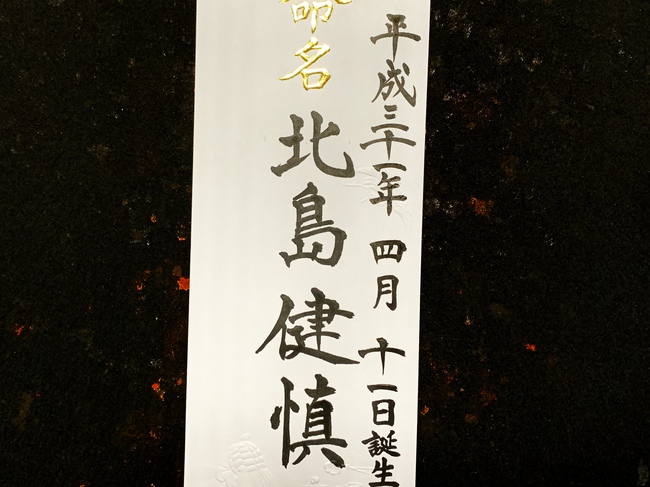 平成三十一年 四月 十一日誕生
命名 北島健慎